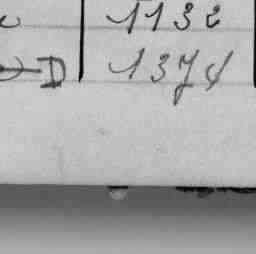 1132
D 1374